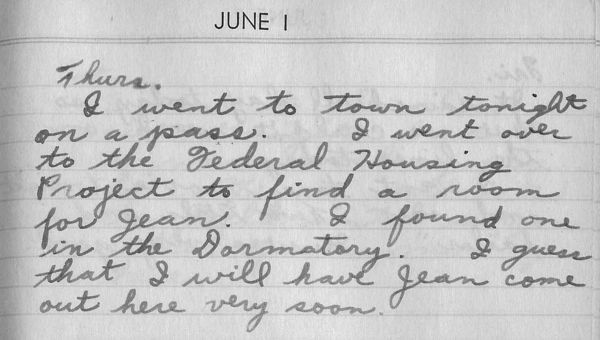 JUNE 1
Thurs.
I went to town tonight
on a pass. I went over
to the Federal Housing
Project to find a room
for Jean. I found one
in the Dormatory. I guess
that I will have Jean come
out here very soon.